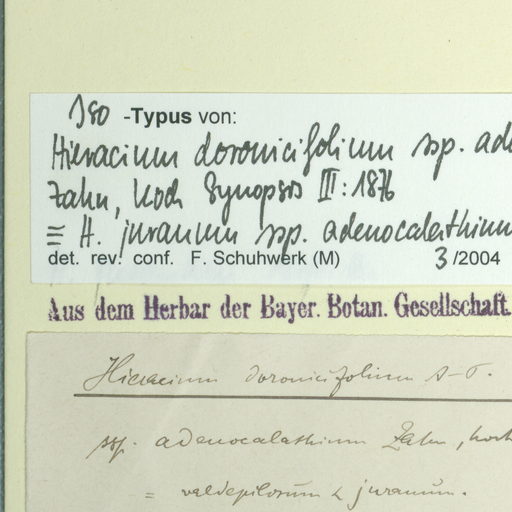 Iso -Typus von:
Hieracium doronicifolium ssp. ade
Zahn, Koch Synopsis III: 1876
≡ H. juranum ssp. adenocalathium
det. rev. conf. F. Schuhwerk (M) 3/2004
Aus dem Herbar der Bayer. Botan. Gesellschaft.
Hieracium doronicifolium A-T.
ssp. adenocalathium Zahn, Koch
= valdepilosum < juranum.